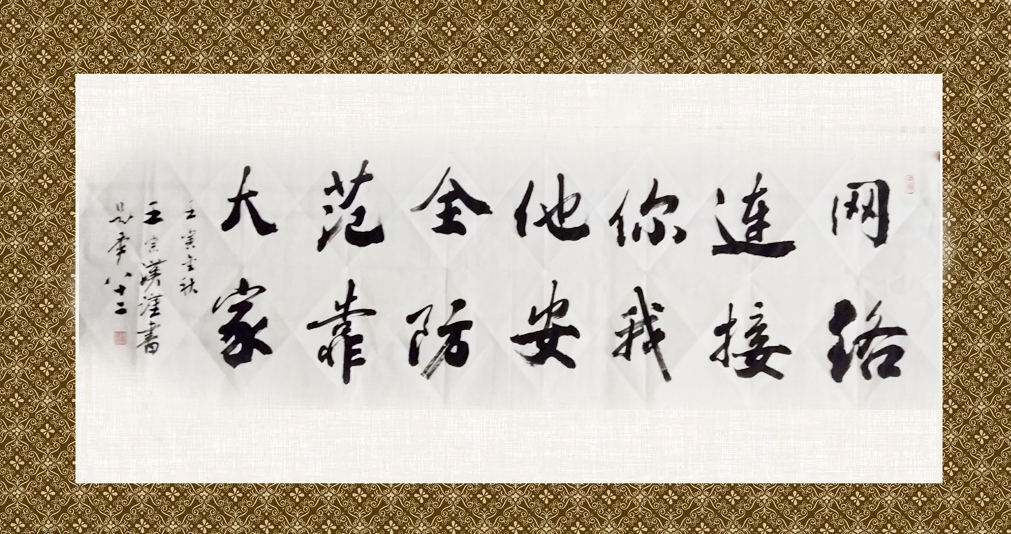 网络
连接
你我
他安
全防
范靠
大家
壬寅金秋
王宗汉涯书
时年八十二